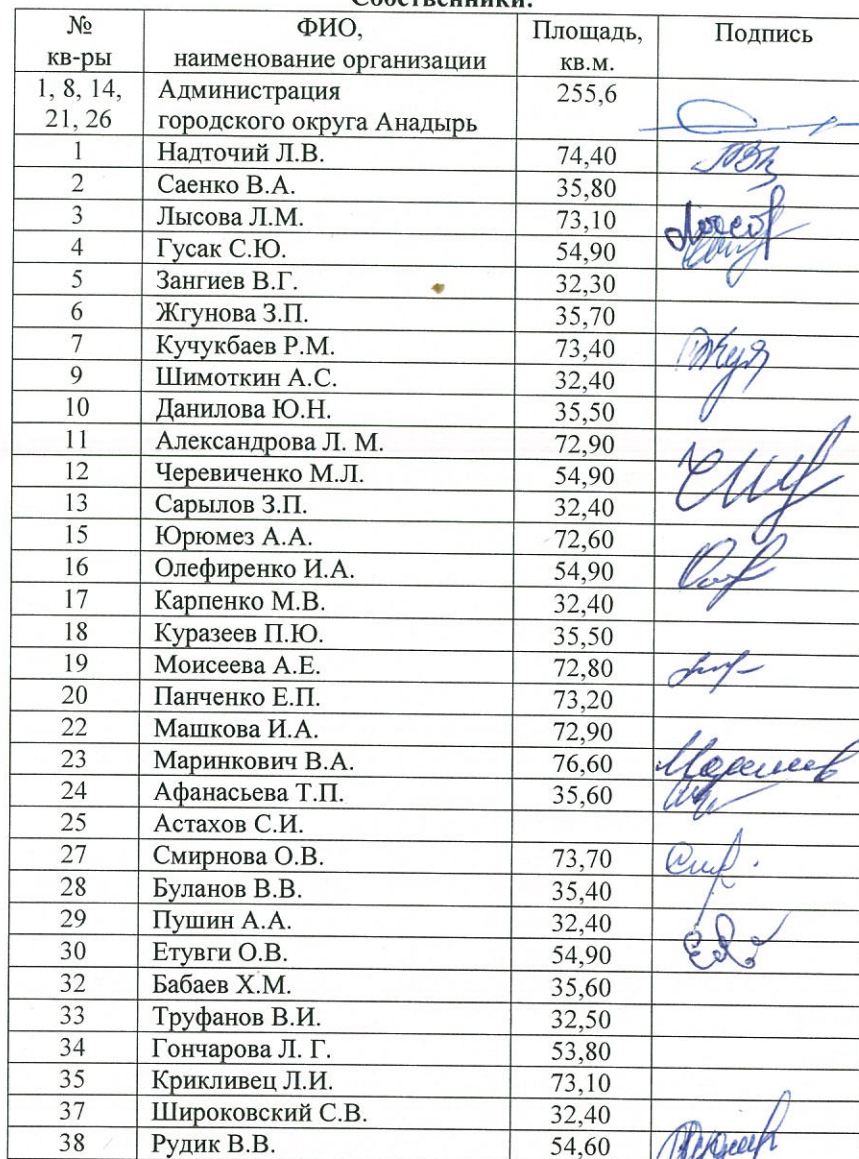 Собственники:
№ кв-ры ФИО, наименование организации Площадь, кв.м. Подпись
1, 8, 14, 21, 26 Администрация городского округа Анадырь 255,6
1 Надточий Л.В. 74,40
2 Саенко В.А. 35,80
3 Лысова Л.М. 73,10
4 Гусак С.Ю. 54,90
5 Зангиев В.Г. 32,30
6 Жгунова З.П. 35,70
7 Кучукбаев Р.М. 73,40
9 Шимоткин А.С. 32,40
10 Данилова Ю.Н. 35,50
11 Александрова Л. М. 72,90
12 Черевиченко М.Л. 54,90
13 Сарылов З.П. 32,40
15 Юрюмез А.А. 72,60
16 Олефиренко И.А. 54,90
17 Карпенко М.В. 32,40
18 Куразеев П.Ю. 35,50
19 Моисеева А.Е. 72,80
20 Панченко Е.П. 73,20
22 Машкова И.А. 72,90
23 Маринкович В.А. 76,60
24 Афанасьева Т.П. 35,60
25 Астахов С.И.
27 Смирнова О.В. 73,70
28 Буланов В.В. 35,40
29 Пушин А.А. 32,40
30 Етувги О.В. 54,90
32 Бабаев Х.М. 35,60
33 Труфанов В.И. 32,50
34 Гончарова Л. Г. 53,80
35 Крикливец Л.И. 73,10
37 Широковский С.В. 32,40
38 Рудик В.В. 54,60